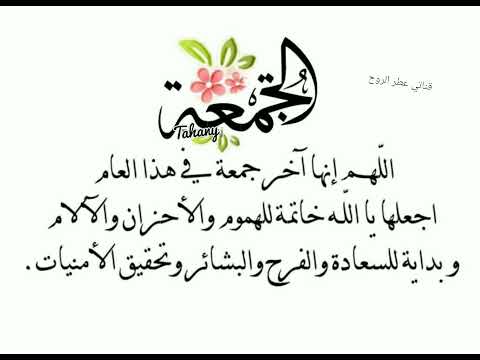 الجمعة
قناتي عطر الروح
Tahany
اللّهم إنها آخر جمعة في هذا العام
اجعلها يا اللّه خاتمة للهموم والأحزان والآلام
وبداية للسعادة والفرح والبشائر وتحقيق الأمنيات .